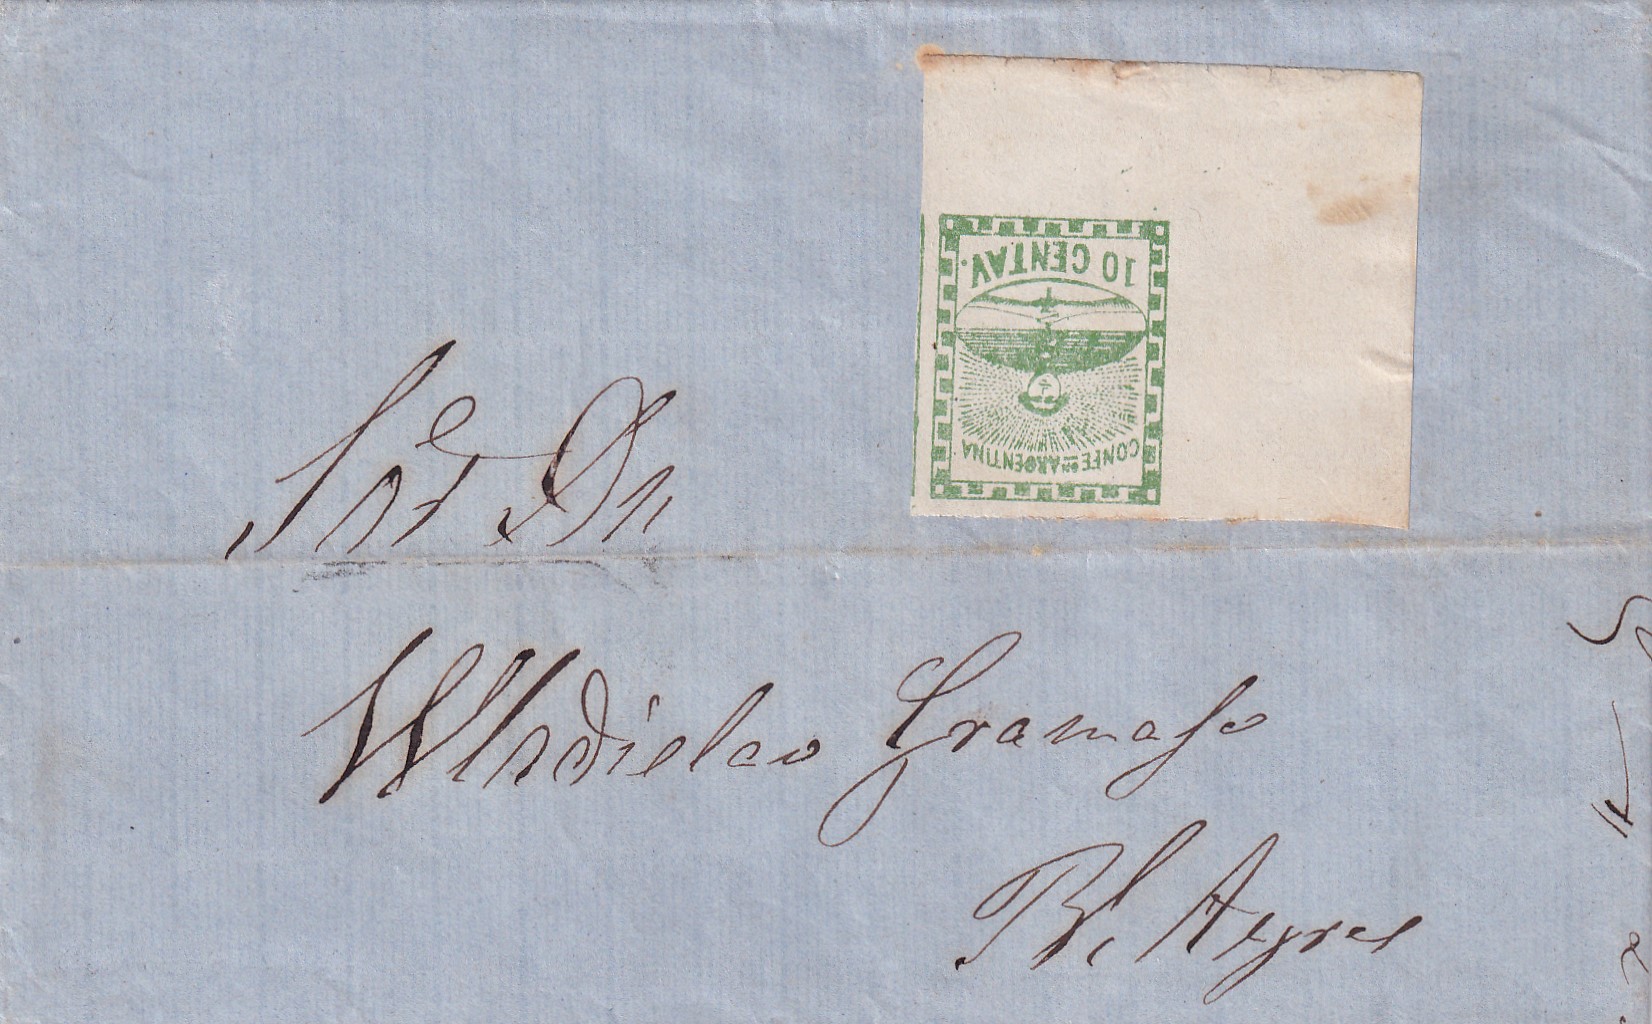 10 CENTAV.
CONFEON ARGENTINA
Sor Dn
Wladislao Gramajo
Bs. Ayres